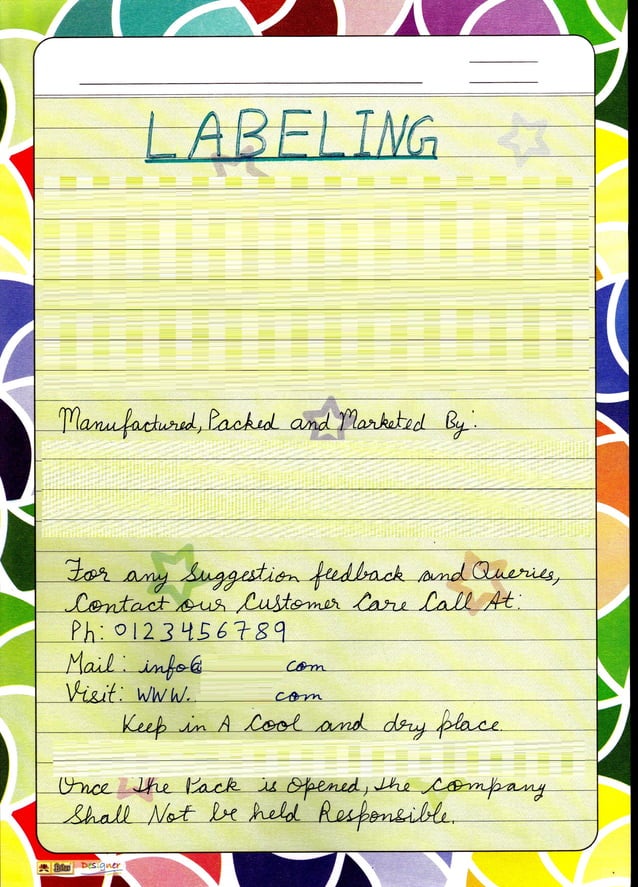 LABELING
Manufactured, Packed and Marketed By:
For any Suggestion feedback and Queries,
Contact our Customer Care Call At:
Ph: 0123456789
Mail: info@ com
Visit: WWW. com
Keep in A Cool and dry place.
Once the Pack is Opened, the company
Shall Not be held Responsible.
Designer